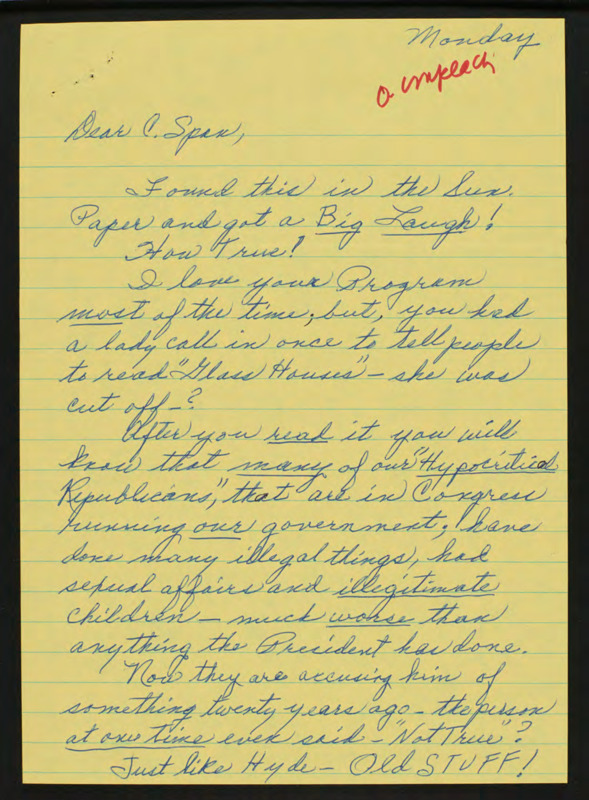 Monday
a impeach
Dear C. Span,
Found this in the Sun.
Paper and got a Big Laugh!
How True!
I love your Program
most of the time, but, you had
a lady call in once to tell people
to read "Glass Houses" - she was
cut off - ?
After you read it you will
know that many of our "Hypocritical
Republicans", that are in Congress
running our government, have
done many illegal things, had
sexual affairs and illegitimate
children - much worse than
anything the President has done.
Now they are accusing him of
something twenty years ago - the person
at one time even said - "Not True"?
Just like Hyde - Old STUFF!